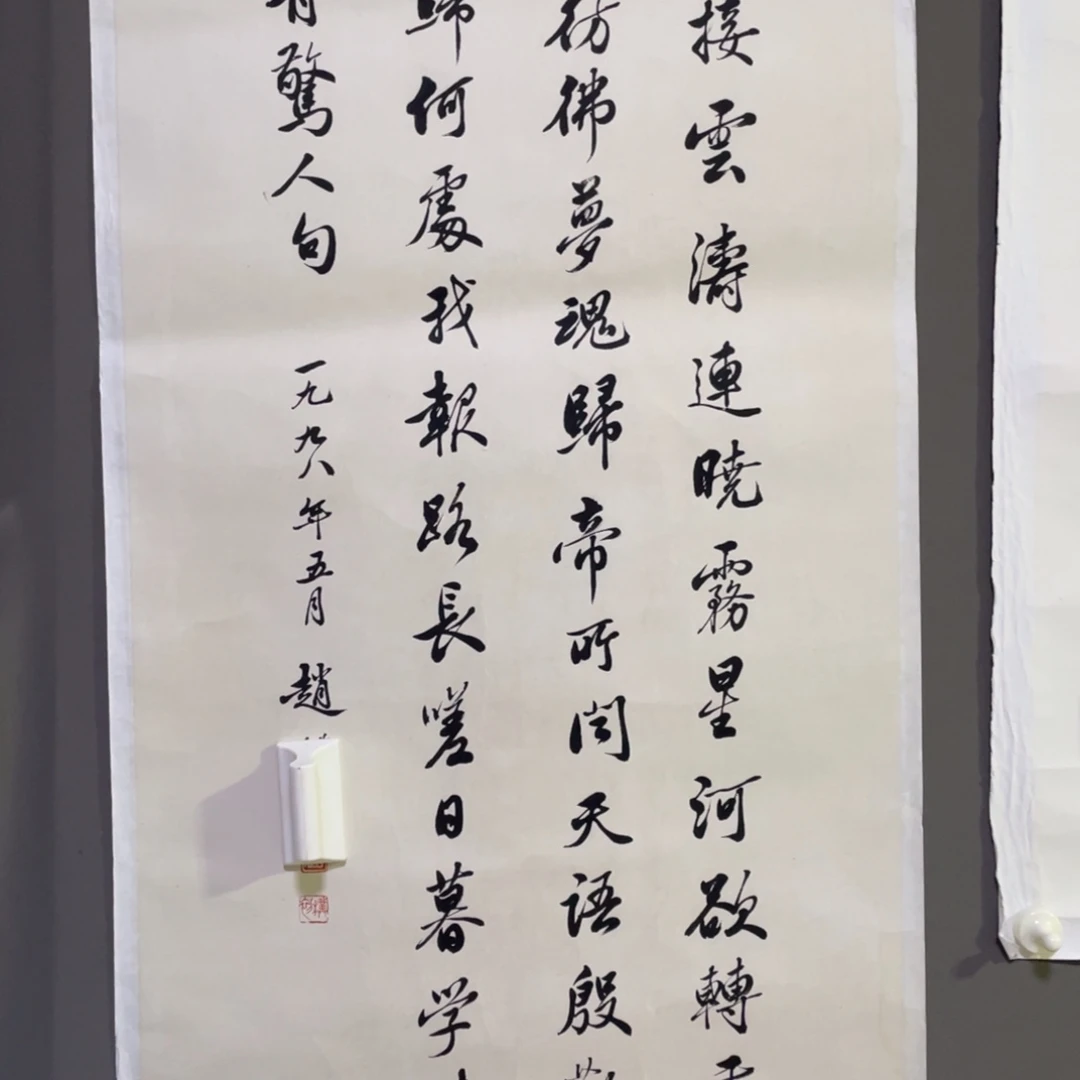 接雲濤連曉霧星河欲轉
彷彿夢魂歸帝所闻天語殷
歸何處我報路長嗟日暮学
有驚人句 一九九八年五月 趙